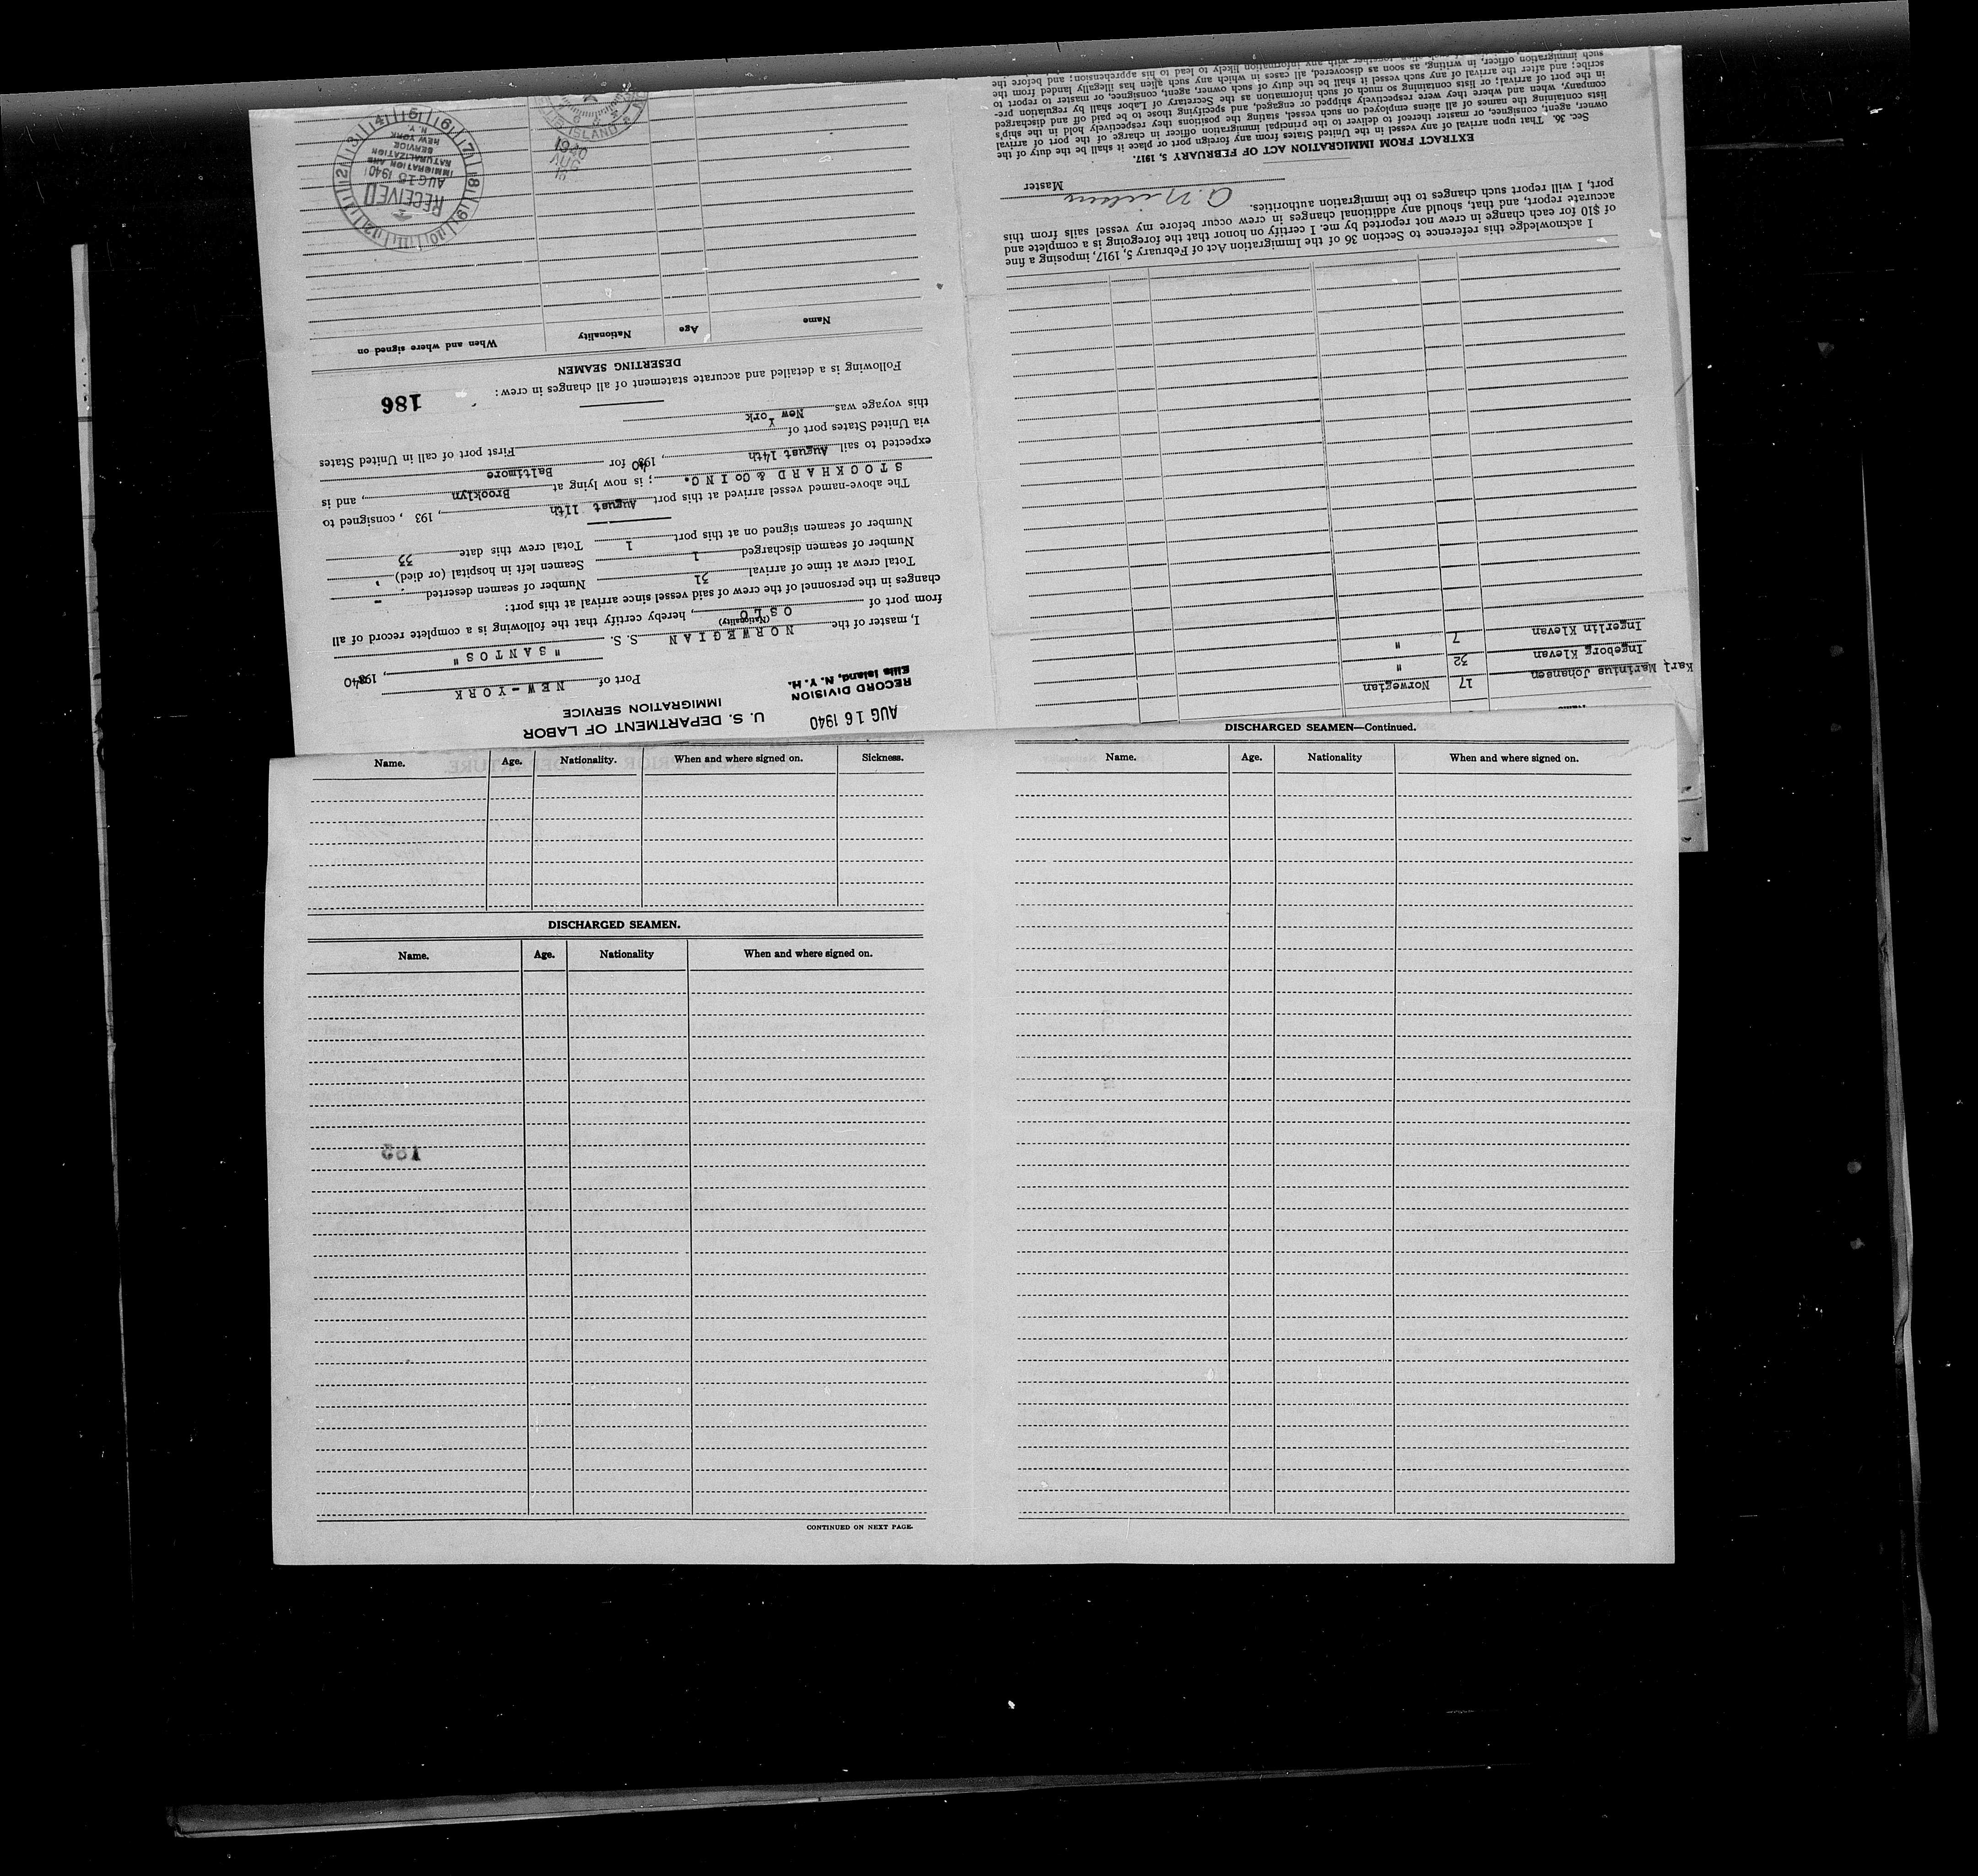 AUG 16 1940
RECORD DIVISION
Ellis Island, N. Y. H.
U. S. DEPARTMENT OF LABOR
IMMIGRATION SERVICE
Port of NEW-YORK, 19340
I, master of the NORWEGIAN S. S. "SANTOS"
(Nationality)
from port of OSLO, hereby certify that the following is a complete record of all
changes in the personnel of the crew of said vessel since arrival at this port:
Total crew at time of arrival 31 Number of seamen deserted -
Number of seamen discharged 1 Seamen left in hospital (or died)
Number of seamen signed on at this port 1 Total crew this date 33
The above-named vessel arrived at this port August 11th, 193 , consigned to
STOCKHARD & Co INC. ; is now lying at Brooklyn, and is
expected to sail August 14th, 19340 for Baltimore
via United States port of First port of call in United States
this voyage was New York
186
Following is a detailed and accurate statement of all changes in crew:
DESERTING SEAMEN
Name Age Nationality When and where signed on
RECEIVED
AUG 15 1940
IMMIGRATION AND
NATURALIZATION
SERVICE
NEW YORK
N. Y.
1 2 3 4 5 6 7 8 9 10 11 12
15
AUG
1940
ISLAND
Karl Marinius Johansen 17 Norwegian
Ingeborg Klevan 32 "
Ingerlin Klevan 7 "
I acknowledge this reference to Section 36 of the Immigration Act of February 5, 1917, imposing a fine
of $10 for each change in crew not reported by me. I certify on honor that the foregoing is a complete and
accurate report, and that, should any additional changes in crew occur before my vessel sails from this
port, I will report such changes to the immigration authorities.
Master
EXTRACT FROM IMMIGRATION ACT OF FEBRUARY 5, 1917.
Sec. 36. That upon arrival of any vessel in the United States from any foreign port or place it shall be the duty of the
owner, agent, consignee, or master thereof to deliver to the principal immigration officer in charge of the port of arrival
lists containing the names of all aliens employed on such vessel, stating the positions they respectively hold in the ship's
company, when and where they were respectively shipped or engaged, and specifying those to be paid off and discharged
in the port of arrival; or lists containing so much of such information as the Secretary of Labor shall by regulation pre-
scribe; and after the arrival of any such vessel it shall be the duty of such owner, agent, consignee, or master to report to
such immigration officer, in writing, as soon as discovered, all cases in which any such alien has illegally landed from the
together with any information likely to lead to his apprehension; and before the
Name. Age. Nationality. When and where signed on. Sickness.
DISCHARGED SEAMEN.
Name. Age. Nationality When and where signed on.
CONTINUED ON NEXT PAGE.
DISCHARGED SEAMEN—Continued.
Name. Age. Nationality When and where signed on.